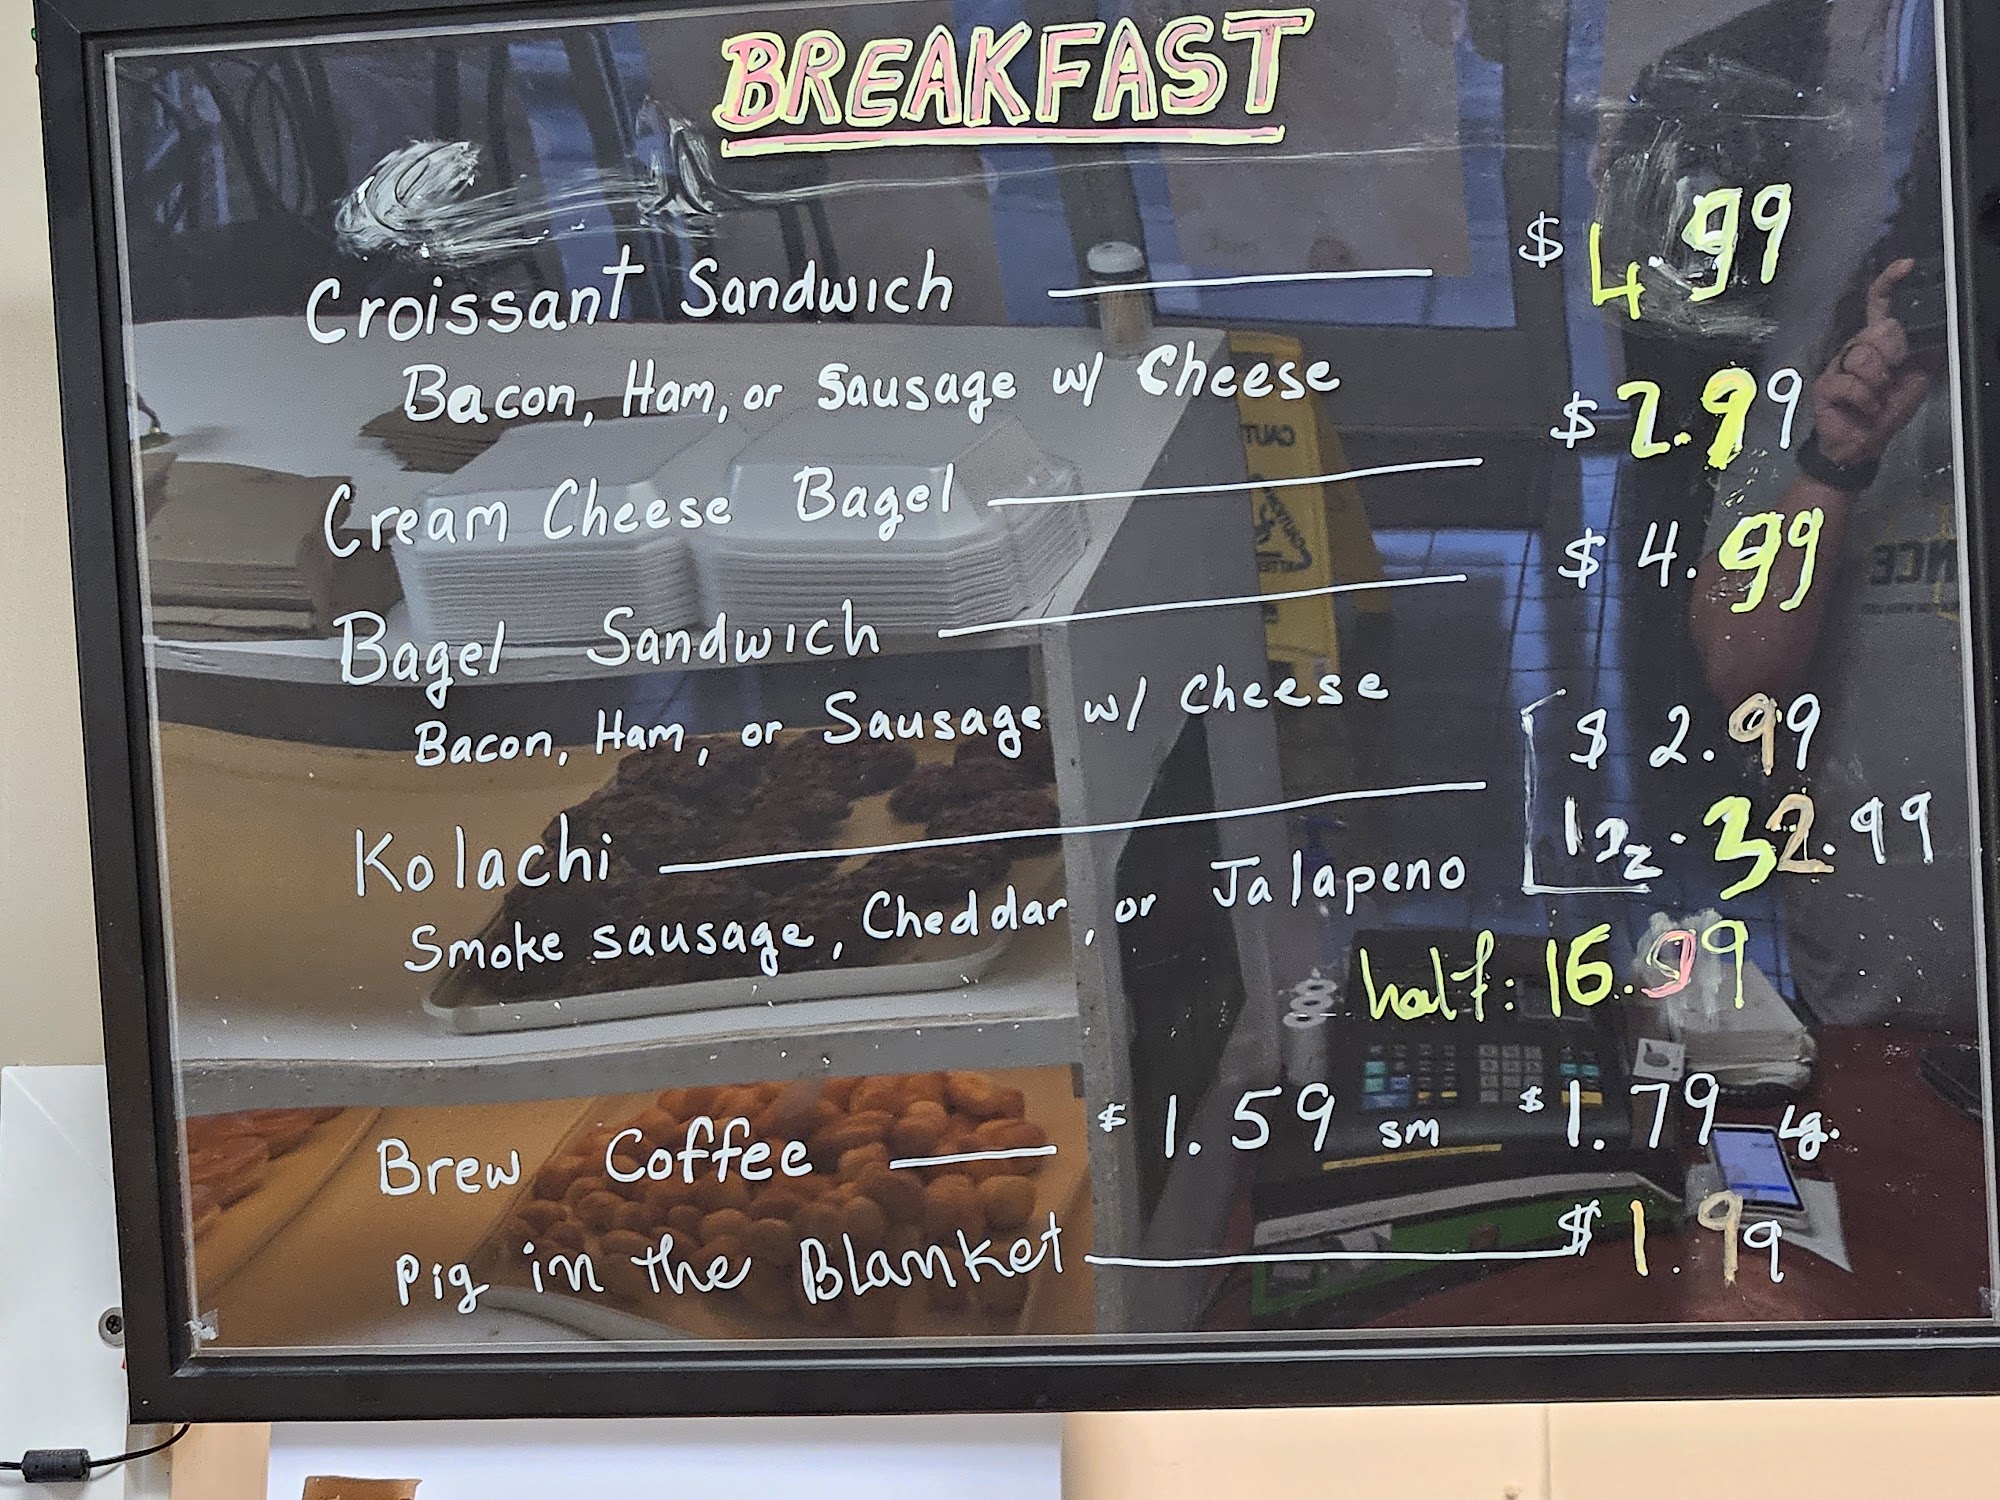 BREAKFAST
Croissant Sandwich $ 4.99
Bacon, Ham, or Sausage w/ Cheese
Cream Cheese Bagel $ 2.99
Bagel Sandwich $ 4.99
Bacon, Ham, or Sausage w/ Cheese
Kolachi $ 2.99
1Dz. 32.99
Smoke sausage, Cheddar, or Jalapeno
half: 16.99
Brew Coffee $ 1.59 sm $ 1.79 Lg.
Pig in the Blanket $ 1.99